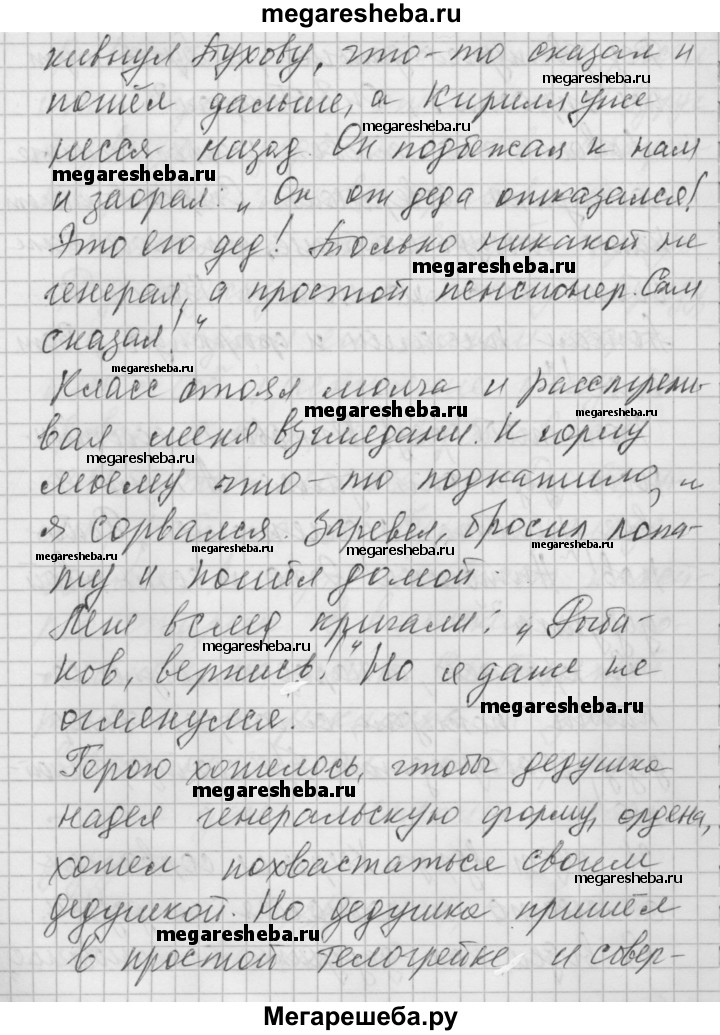 megaresheba.ru
кивнул Пухову, что-то сказал и
megaresheba.ru
пошёл дальше, а Кирилл уже
megaresheba.ru
нёсся назад. Он подбежал к нам
megaresheba.ru
и заорал: „Он от деда отказался!
Это его дед! Только никакой не
megaresheba.ru
генерал, а простой пенсионер. Сам
сказал!"
megaresheba.ru
Класс стоял молча и расстрели-
megaresheba.ru
megaresheba.ru
вал меня взглядами. К горлу
megaresheba.ru
моему что-то подкатило, и
я сорвался. Заревел, бросил лопа-
megaresheba.ru
megaresheba.ru
megaresheba.ru
megaresheba.ru
ту и пошёл домой.
Мне вслед кричали: „Рыба-
megaresheba.ru
megaresheba.ru
ков, вернись!" Но я даже не
megaresheba.ru
оглянулся.
Герою хотелось, чтобы дедушка
megaresheba.ru
надел генеральскую форму, ордена,
хотел похвастаться своим
megaresheba.ru
дедушкой. Но дедушка пришёл
megaresheba.ru
в простой телогрейке и совер-
Мегарешеба.ру